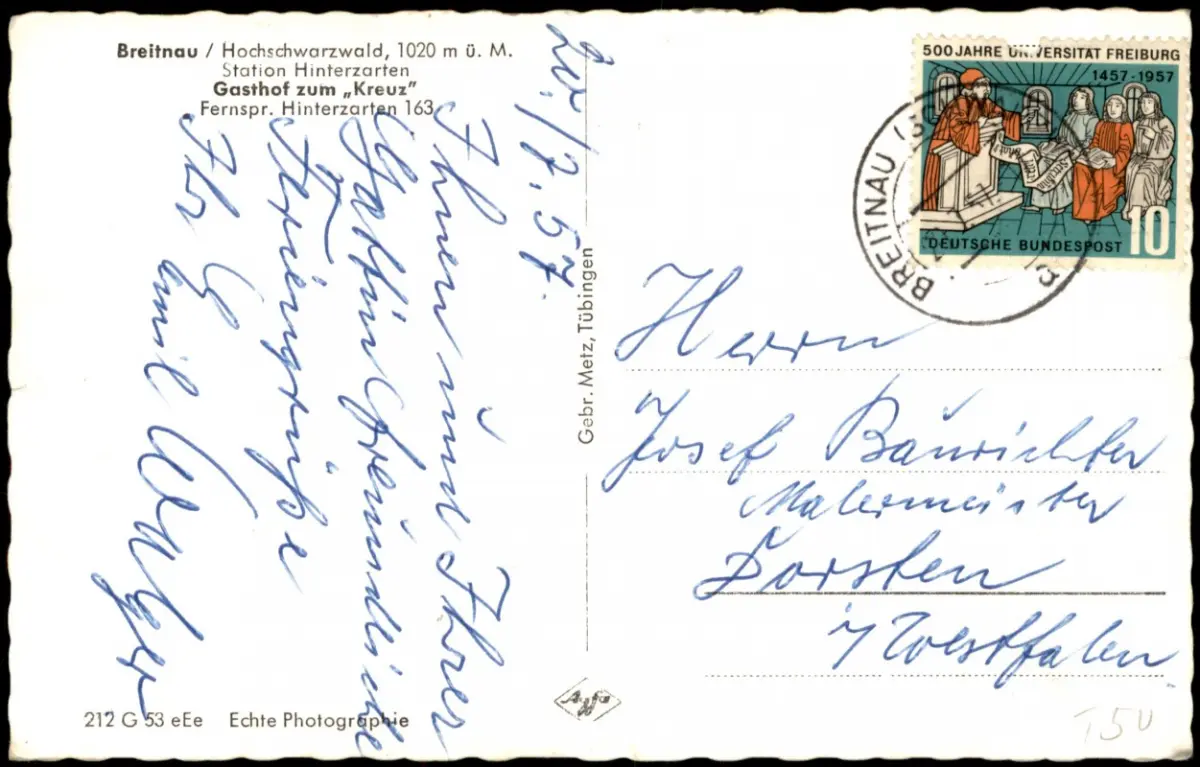 Breitnau / Hochschwarzwald, 1020 m ü. M.
Station Hinterzarten
Gasthof zum „Kreuz"
Fernspr. Hinterzarten 163
20./7.57.
Ihnen und Ihrer
Gattin freundliche
Feriengrüße
Ihr
Emil Walger
212 G 53 eEe Echte Photographie
Gebr. Metz, Tübingen
Agfa
500 JAHRE UNIVERSITÄT FREIBURG
1457-1957
DEUTSCHE BUNDESPOST 10
BREITNAU
Herrn
Josef Baurichter
Malermeister
Dorsten
i/Westfalen